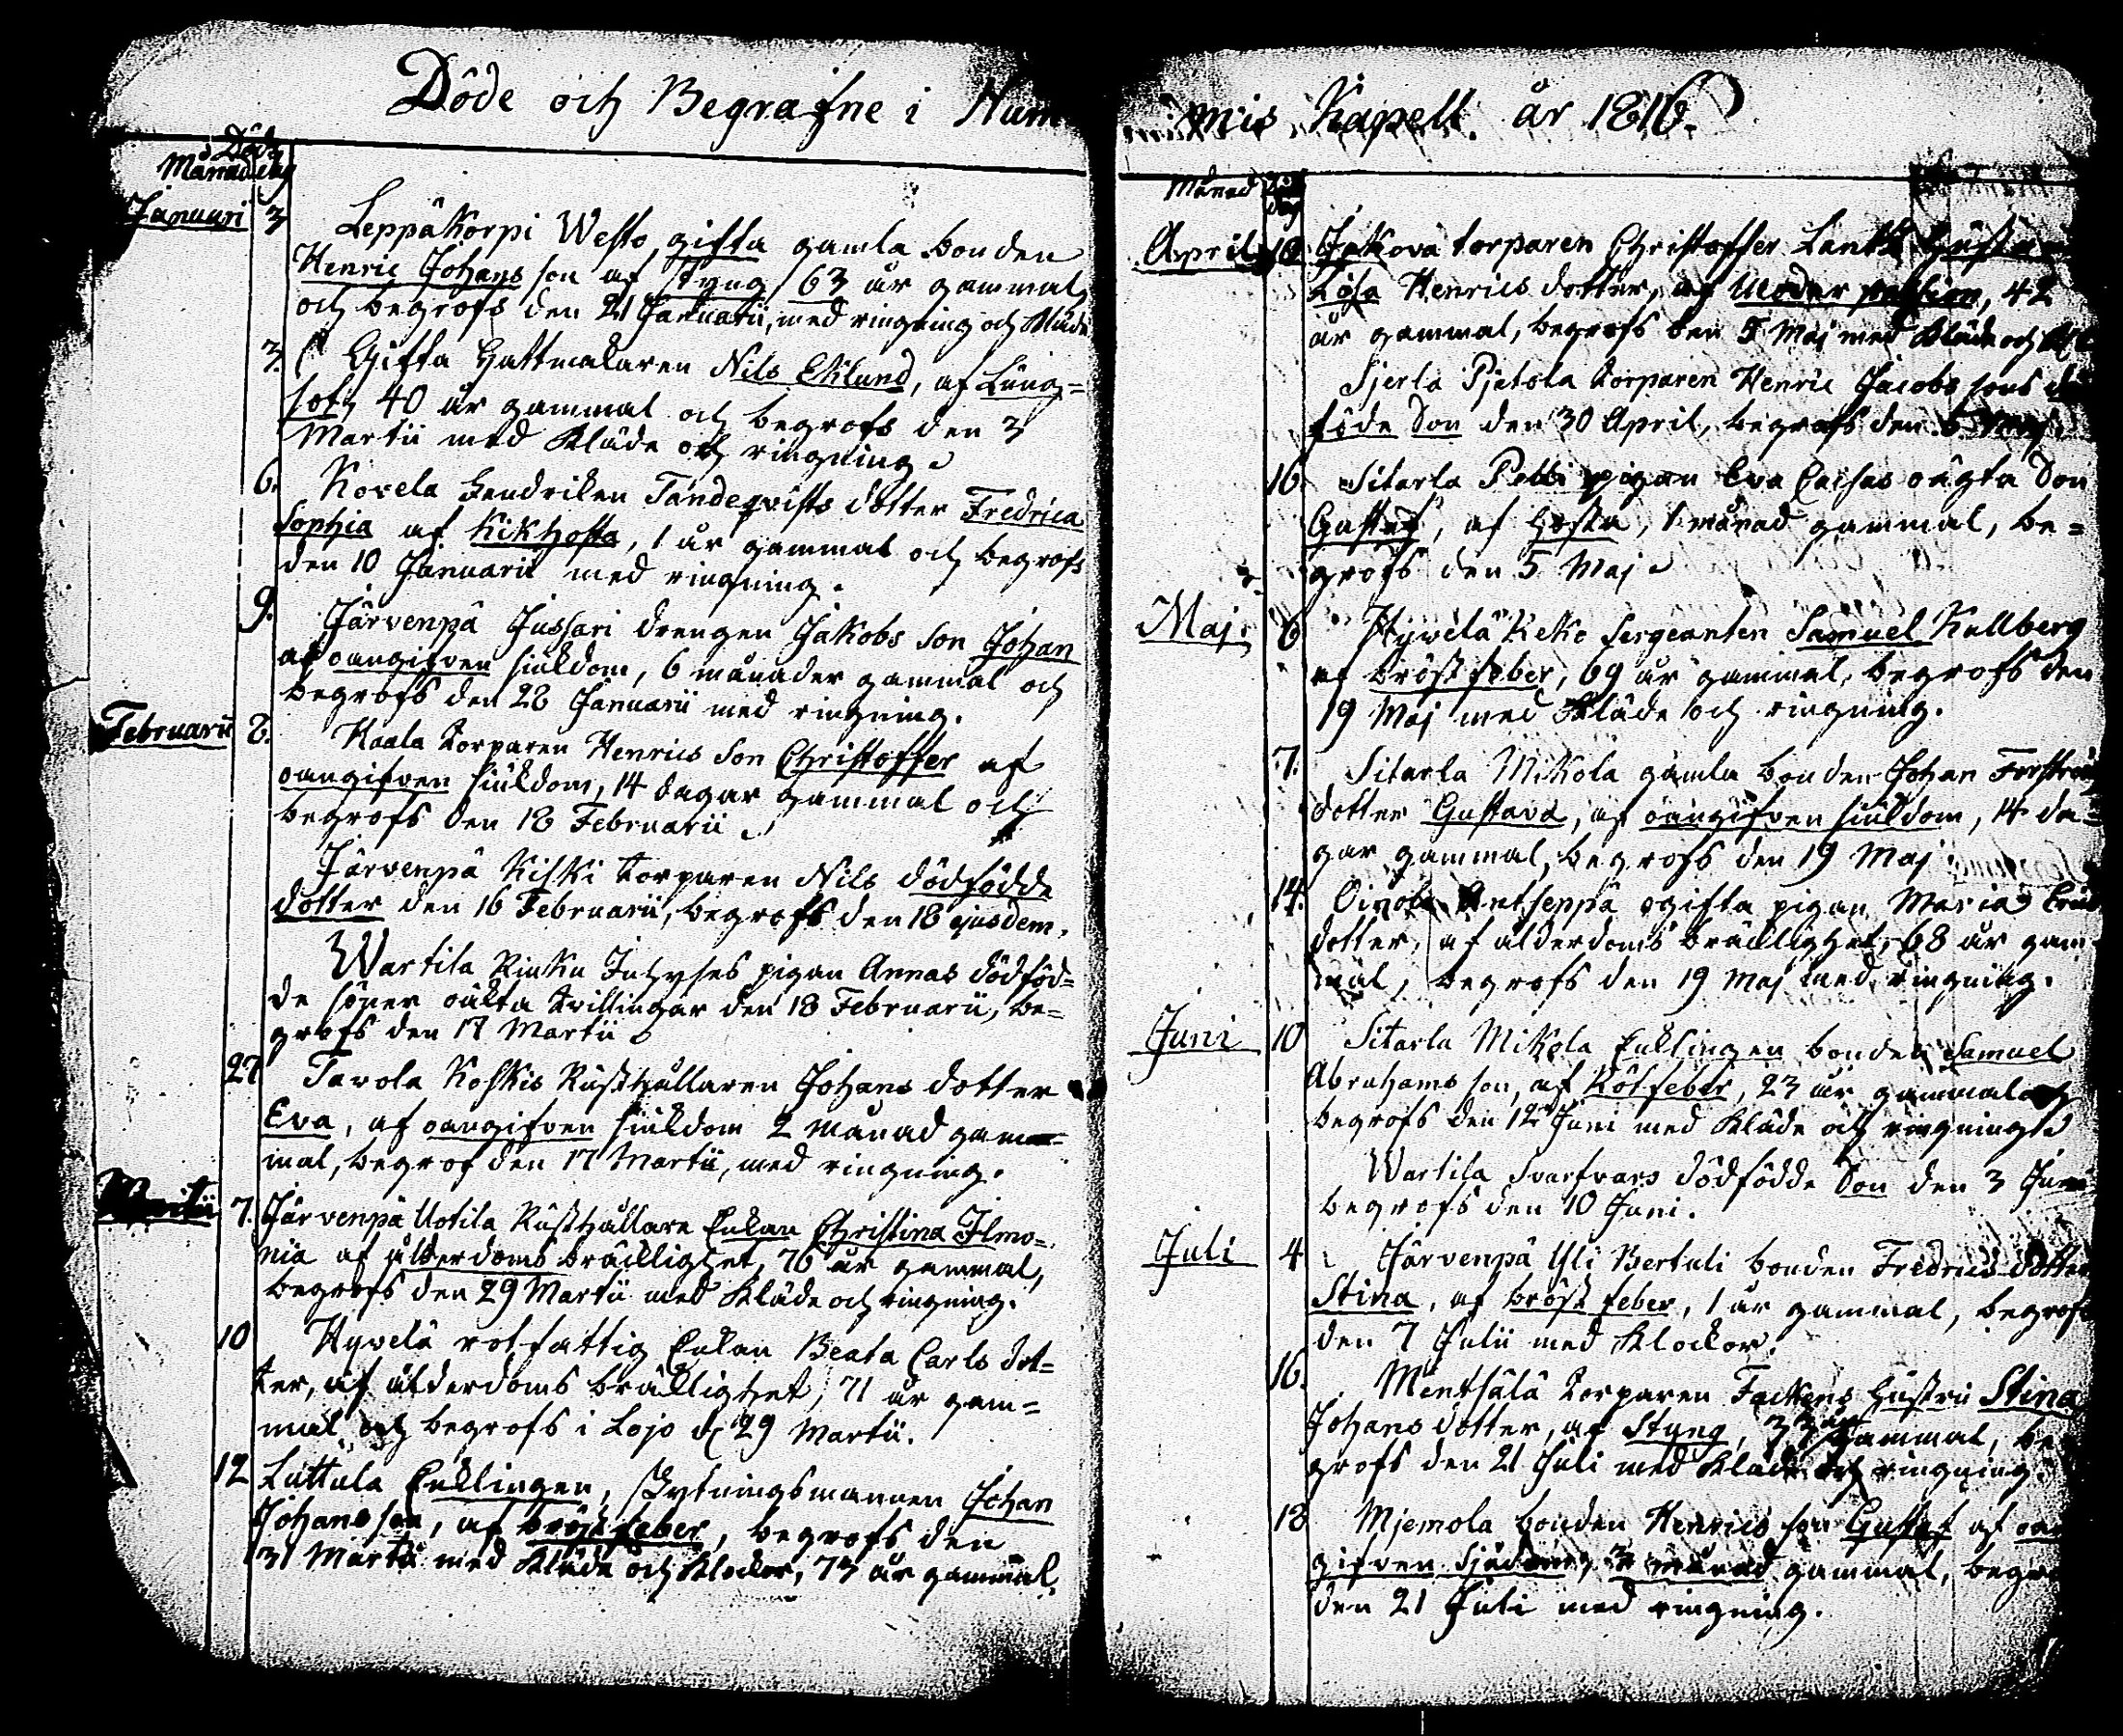 Döde och Begrafne i Num
Död
Månad dag
Januari 3 Leppäkorpi Westo gifta gamla bonden
Henric Johans son af styng 63 år gammal
och begrofs den 21 Januarii, med ringning och kläde
3. Gifta Hattmakaren Nils Eklund, af Lung=
sot 40 år gammal och begrofs den 3
Martii med kläde och ringning.
6. Kovela Lendriken Tandeqvists dotter Fredrica
Sophia af Kikhosta, 1 år gammal och begrofs
den 10 Januarii med ringning.
9. Järvenpä Jussari drengen Jakobs son Johan
af oangifven siukdom, 6 månader gammal och
begrofs den 28 Januarii med ringning.
Februarii 8. Kaala torparen Henrics son Christoffer af
oangifven siukdom, 14 dagar gammal och
begrofs den 18 Februarii.
Järvenpä Kiski torparen Nils dödfödde
dotter den 16 Februarii, begrofs den 18 ejusdem.
Wartila Rinku Inhyses pigan Annas dödföd=
de söner oäkta tvillingar den 18 Februarii, be=
grofs den 17 Martii
27 Tavola Koskis Rusthållaren Johans dotter
Eva, af oangifven siukdom 2 månad gam=
mal, begrof den 17 Martii, med ringning.
Martii 7. Järvenpä Uotila Rusthållare Enkan Christina Ilmo=
nia af ålderdoms bräcklighet, 76 år gammal,
begrofs den 29 Martii med kläde och ringning.
10 Hyvelä rotfattig Enkan Beata Carls dot=
ter, af ålderdoms bräcklighet, 71 år gam=
mal och begrofs i Lojo d. 29 Martii.
12 Luttula Enklingen, Skytningsmannen Johan
Johansson, af bröstfeber, begrofs den
31 Martii med kläde och klockor, 73 år gammal.
mis Kapell. år 1816.
Månad dag
April 10 Jakova torparen Christoffer Hustru
Lisa Henrics dotter, af Moder passion, 42
år gammal, begrofs den 5 Maj med kläde och
Sjerla Pjetola torparen Henric Jacobs sons
födde Son den 30 April, begrofs den 5 Maj.
16 Sitarla Petti pigan Eva Caisas oägta Son
Gustaf, af Hosta, 1 månad gammal, be=
grofs den 5 Maj
Maj. 6 Hyvelä Keko Sergeanten Samuel Kullberg
af bröst feber, 69 år gammal, begrofs den
19 Maj med kläde och ringning.
7. Sitarla Mikola gamla bonden Johan
dotter Gustava, af oangifven siukdom, 14 da=
gar gammal, begrofs den 19 Maj
14. Oinola Antseppä ogifta pigan Maria
dotter, af ålderdoms bräcklighet, 68 år gam
mal, begrofs den 19 Maj med ringning.
Juni 10 Sitarla Mikola Enklingen bonden Samuel
Abrahams son, af Rötfeber, 23 år gammal och
begrofs den 12 Juni med kläde och ringning
Wartila Svartvars dödfödde Son den 3 Juni
begrofs den 10 Juni.
Juli 4 Järvenpä Yli Bertuli bonden Fredrics dotter
Stina, af bröst feber, 1 år gammal, begrofs
den 7 Julii med klockor.
16. Mentsälä torparen Fackens Hustru Stina
Johans dotter, af Styng, 33 år gammal, be
grofs den 21 Juli med kläde och ringning.
18 Mjemola bonden Henrics son Gustaf af oan
gifven Sjudom, 3 månad gammal, begro
den 21 Juli med ringning.